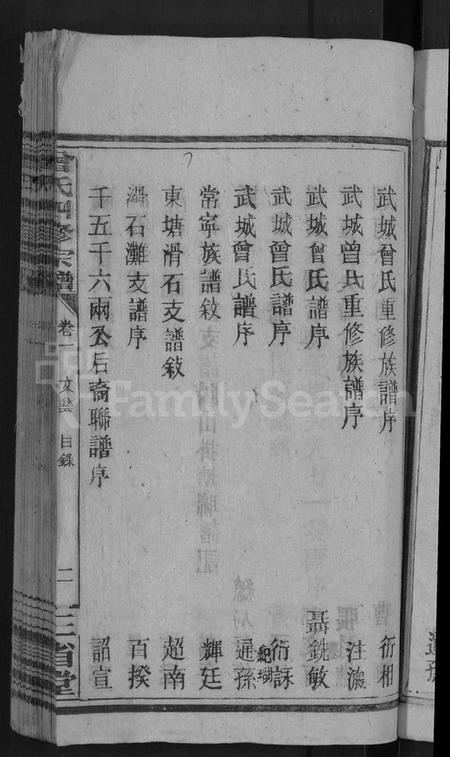 武城曾氏重修族譜序 衍相
武城曾氏重修族譜序 注瀛
武城曾氏譜序 聶銑敏
武城曾氏譜序 衍詠
武城曾氏譜序 紀瑚 遜孫
常寧族譜敘 輝廷
東塘滑石支譜敘 超南
滑石灘支譜序 百揆
千五千六兩公后裔聯譜序 詔宣
曾氏四修宗譜 卷一 文藝 目錄 二 三省堂
FamilySearch